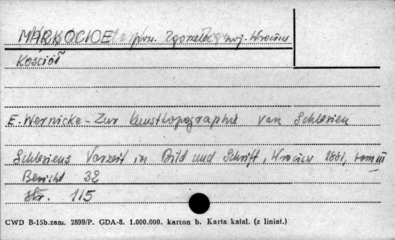 MARKOCICE pow. Zgorzelec woj. Wrocław
Kościół
E. Wernicke - Zur Kunsttopographie von Schlesien
Schlesiens Vorzeit in Bild und Schrift, Wrocław 1881, tom III
Bericht 32
Str. 115
CWD B-15b.zam. 2899/P. GDA-8. 1.000.000. karton b. Karta katal. (z liniat.)